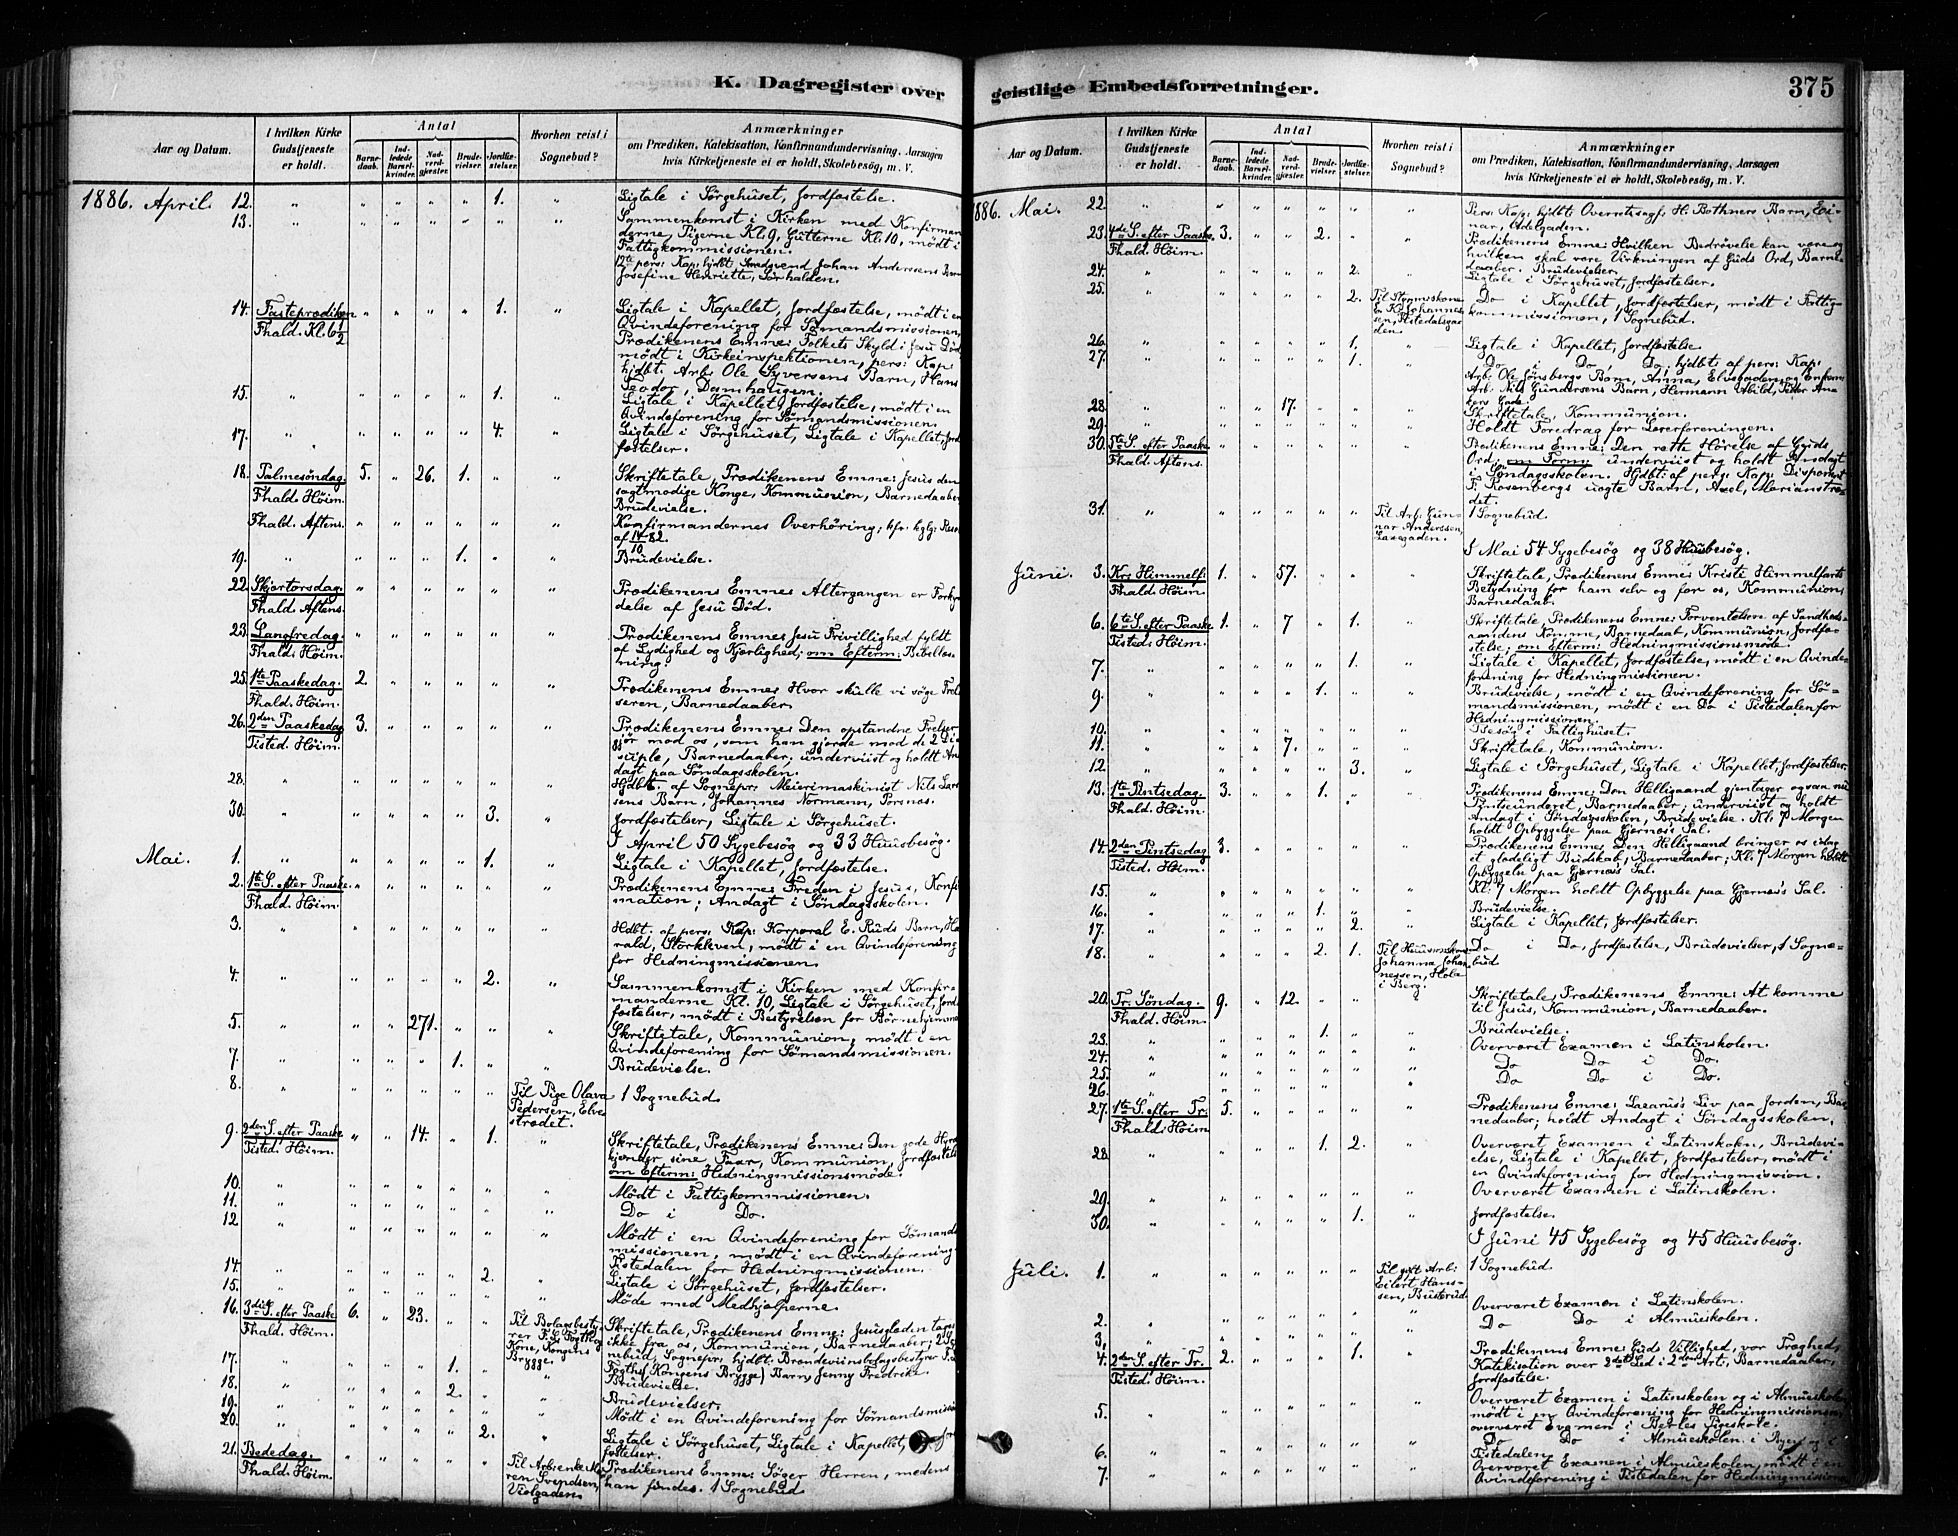 K. Dagregister over
Aar og Datum.
I hvilken Kirke Gudstjeneste er holdt.
Antal
Barnedaab.
Indledede Barselkvinder.
Nadverdgjæster.
Brudevielser.
Jordfæstelser.
Hvorhen reist i Sognebud?
Anmærkninger
om Prædiken, Katekisation, Konfirmandundervisning, Aarsagen
hvis Kirketjeneste ei er holdt, Skolebesøg, m. V.
1886. April. 12. " " " " " 1. " Ligtale i Sørgehuset, Jordfæstelse.
13. " " " " " " " Sammenkomst i Kirken med Konfirman
derne, Pigerne Kl. 9, Gutterne Kl. 10, mødt i
Fattigkommissionen.
12te pers: Kap: hjdbt Smedsvend Johan Anderssens Barn
Josefine Henriette, Sørhalden.
14. Fasteprædiken " " " " 1. " Ligtale i Kapellet, Jordfæstelse, mødt i en
Fhald. Kl. 6½ Qvindeforening for Sømandsmissionen,
Prædikenens Emne: Folkets Skyld i Jesu Død
mødt i Kirkeinspektionen, pers: Kap:
hjdbt. Arb: Ole Syversens Barn, Hans
Teodor, Damhaugen.
15. " " " " " 1. " Ligtale i Kapellet, Jordfæstelse, mødt i en
Qvindeforening for Sømandsmissionen.
17. " " " " " 4. " Ligtale i Sørgehuset, Ligtale i Kapellet, Jord
fæstelser.
18. Palmesøndag. 5. " 26. 1. " " Skriftetale, Prædikenens Emne: Jesus den
Fhald. Höim. sagtmodige Konge, Kommunion, Barnedaaber
Brudevielse.
Fhald. Aftens. " " " " " " Konfirmandernes Overhøring; kfr. kglg: Reso
af 14/10 82.
19. " " " " 1. " " Brudevielse.
22. Skjærtorsdag. " " " " " " Prædikenens Emne: Altergangen er Forkyn
Fhald. Aftens. delse af Jesu Död.
23. Langfredag. " " " " " " Prædikenens Emne: Jesu Frivillighed fyldt
Fhald. Höim. af Lydighed og Kjærlighed; om Efterm: Bibellæs
ning.
25. 1ste Paaskedag. 2. " " " " " Prædikenens Emne: Hvor skulle vi søge Frel
Fhald. Höim. seren, Barnedaaber.
26. 2den Paaskedag 3. " " " " " Prædikenens Emne: Den opstandne Frelser
Tisted. Höim. gjør mod os, som han gjorde mod de 2 Di
siple, Barnedaaber, underviist og holdt An
dagt paa Søndagsskolen.
28. " " " " " " " Hjdbt. af Sognepr: Meierimaskinist Nils Lar
sens Barn, Johannes Normann, Porsnæs.
30. " " " " " 3. " Jordfæstelser, Ligtale i Sørgehuset.
I April 50 Sygebesøg og 33 Huusbesøg.
Mai. 1. " " " " " 1. " Ligtale i Kapellet, Jordfæstelse.
2. 1ste S. efter Paaske. " " " " " " Prædikenens Emne: Freden i Jesus, Konfir
Fhald. Höim. mation; Andagt i Søndagsskolen.
3. " " " " " " " Hdbt. af pers: Kap: Korporal E. Ruds Barn, Ha
rald, Storkleven, mødt i en Qvindeforening
for Hedningmissionen.
4. " " " " " 2. " Sammenkomst i Kirken med Konfir-
manderne Kl. 10, Ligtale i Sørgehuset, Jord
fæstelser, mødt i Bestyrelsen for Børnehjemmet
5. " " " 271. " " " Skriftetale, Kommunion, mødt i en
Qvindeforening for Sømandsmissionen.
7. " " " " 1. " " Brudevielse.
8. " " " " " " Til Pige Olava 1 Sognebud
Pedersen, Elve
strædet.
9. 2den S. efter Paaske " " 14. " 1. " Skriftetale, Prædikenens Emne: Den gode Hyrde
Tisted. Höim. kjender sine Faar, Kommunion, Jordfæstelse
om Efterm: Hedningmissionsmøde.
10. " " " " " " " Mødt i Fattigkommissionen.
11. " " " " " " " Do i Do.
12. " " " " " " " Mødt i en Qvindeforening for Sømands
missionen, mødt i en Qvindeforening
Tistedalen for Hedningmissionen.
14. " " " " " 2. " Ligtale i Sørgehuset, Jordfæstelser.
15. " " " " " " " Møde med Medhjælperne.
16. 3die S. efter Paaske 6. " 23. " " Til Bolagsbesty Skriftetale, Prædikenens Emne: Jesusglæden tages
Fhald. Höim. ikke fra os, Kommunion, Barnedaaber, 2 Sog
Kone, Kongens nebud, Sognepr: hjdbt. Brændeviinsbolagsbestyrer
Brygge. Kongens Brygge) Barn Jenny Fredrekke
17. " " " " 1. " " Brudevielse.
18. " " " " 2. " " Brudevielser.
19. " " " " " " " Mødt i en Qvindeforening for Sømandsmissi
20. " " " " " 2. " Ligtale i Sørgehuset, Ligtale i Kapellet, Jord
fæstelser.
21. Bededag. " " " " " Til Arb:enke Ma Prædikenens Emne: Søger Herren, medens
Fhald. Höim. ren Svendsen, han findes. 1 Sognebud
Violgaden.
geistlige Embedsforretninger. 375
Aar og Datum.
I hvilken Kirke Gudstjeneste er holdt.
Antal
Barnedaab.
Indledede Barselkvinder.
Nadverdgjæster.
Brudevielser.
Jordfæstelser.
Hvorhen reist i Sognebud?
Anmærkninger
om Prædiken, Katekisation, Konfirmandundervisning, Aarsagen
hvis Kirketjeneste ei er holdt, Skolebesøg, m. V.
886. Mai. 22. " " " " " " " Pers: Kap: hjdbt: Overretssagf: H. Bothners Barn, Ei-
nar, Adelgaden.
23. 4de S. efter Paaske. 3. " " 2. " " Prædikenens Emne: Hvilken Bedrøvelse kan være og
Fhald. Höim. hvilken skal være Virkningen af Guds Ord, Barne
daaber. Brudevielser.
24. " " " " " 2. " Ligtale i Sørgehuset, Jordfæstelser.
25. " " " " " 2. Til Styrmskone Do i Kapellet, Jordfæstelser, mødt i Fattig-
Johannes kommissionen, 1 Sognebud.
sen, Tistedalsga
den
26. " " " " " 1. " Ligtale i Kapellet, Jordfæstelse
27. " " " " " 1. " Do i Do, Do, hjdbt: af pers: Kap:
Arb: Ole Jønsbergs Barn, Anna, Elvegaden, og
Arb: Nils Gundersens Barn, Hermann Abild, Peder Ana
kers Gade.
28. " " " 17. " " " Skriftetale, Kommunion.
29. " " " " " " " Holdt Foredrag for Lærerforeningen.
30. 5te S. efter Paaske " " " " " " Prædikenens Emne: Den rette Hørelse af Guds
Fhald. Aftens. Ord, om Form: underviist og holdt Andagt
i Søndagsskolen. Hjdbt: af pers: Kap: Disponent
F. Rosenbergs uægte Barn, Axel, Marianstræ
det.
31. " " " " " " Til Arb: Gun- 1 Sognebud.
nar Anderssen,
Laxegaden.
I Mai 54 Sygebesøg og 38 Huusbesøg.
Juni. 3. Kr: Himmelf: 1. " 57. " " " Skriftetale, Prædikenens Emne: Kristi Himmelfarts
Fhald. Höim. Betydning for ham selv og for os, Kommunion,
Barnedaab.
6. 6te S. efter Paaske 1. " 7 " 1. " Skriftetale, Prædikenens Emne: Forventelsen af Sandheds-
Tisted. Höim. aandens Komme, Barnedaab, Kommunion, Jordfæ-
stelse; om Efterm: Hedningmissionsmøde.
7. " " " " " 1. " Ligtale i Kapellet, Jordfæstelse, mødt i en Qvinde-
forening for Hedningmissionen.
9. " " " " 1. " " Brudevielse, mødt i en Qvindeforening for Sø-
mandsmissionen, mødt i en Do i Tistedalen for
Hedningmissionen.
10. " " " " " " " Besøg i Fattighuset.
11. " " " 7. " " " Skriftetale, Kommunion.
12. " " " " " 3. " Ligtale i Sørgehuset, Ligtale i Kapellet, Jordfæstelser.
13. 1ste Pintsedag. 3. " " 1. " " Prædikenens Emne: Den Helligaand gjentager ogsaa nu
Fhald. Höim. Pintseunderet, Barnedaaber; underviist og holdt
Andagt i Søndagsskolen, Brudevielse. Kl. 7 Morgen
holdt Opbyggelse paa Gjærnøs's Sal.
14. 2den Pintsedag 3. " " " " " Prædikenens Emne: Den Helligaand bringer os idag
Tisted. Höim. et glædeligt Budskab, Barnedaaber; Kl. 7 Morgen holdt
Opbyggelse paa Gjærnøs's Sal.
15. " " " " " " " Kl: 7 Morgen holdt Opbyggelse paa Gjærnøs's Sal.
16. " " " " 1. " " Brudevielse.
17. " " " " " 2. " Ligtale i Kapellet, Jordfæstelser.
18. " " " " 2. 1. Til Huusmskone Do i Do, Jordfæstelse, Brudevielser, 1 Sogne-
Johanna Johan- bud
nessen, Hola
i Berg.
20. Tr: Søndag. 9. " 12. " " " Skriftetale, Prædikenens Emne: At komme
Fhald. Höim. til Jesus, Kommunion, Barnedaaber.
23. " " " " 1. " " Brudevielse.
24. " " " " " " " Overværet Examen i Latinskolen.
25. " " " " " " " Do Do i Do.
26. " " " " " " " Do Do i Do.
27. 1ste S. efter Tr: 5. " " " " " Prædikenens Emne: Lazarus's Liv paa Jorden, Bar
Fhald: Höim nedaaber; holdt Andagt i Søndagsskolen.
28. " " " " 1. 2. " Overværet Examen i Latinskolen, Brudevi-
else, Ligtale i Kapellet, Jordfæstelser, mødt i
en Qvindeforening for Hedningmission.
29. " " " " " " " Overværet Examen i Latinskolen.
30. " " " " " 1. " Jordfæstelse.
I Juni 45 Sygebesøg og 45 Huusbesøg.
Juli. 1. " " " " " " Til gft Arb: 1 Sognebud.
Eilert Hans-
sen, Busterud.
2. " " " " " " " Overværet Examen i Latinskolen.
3. " " " " " " " Do Do i Almueskolen.
4. 2den S. efter Tr. 2. " " " 1. " Prædikenens Emne: Guds Villighed, vor Træghed,
Tisted. Höim. Katekisation over 2det Led i 2den Art., Barnedaaber,
Jordfæstelse.
5. " " " " " " " Overværet Examen i Latinskolen og i Almueskolen
mødt i en Qvindeforening for Hedningmissionen
overværet Examen i Pigeskole.
6. " " " " " " " Do Do i Almueskolen i Byen og i
Tistedalen.
7. " " " " " " " Overværet Examen i Almueskolen, mødt i en
Qvindeforening i Tistedalen for Hedningmissione